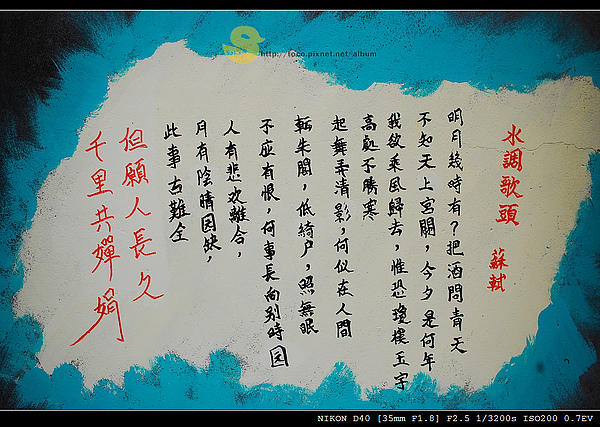 http://loco.pixnet.net/album
水調歌頭
蘇軾
明月幾時有？把酒問青天
不知天上宮闕，今夕是何年
我欲乘風歸去，惟恐瓊樓玉宇
高處不勝寒
起舞弄清影，何似在人間
轉朱閣，低綺户，照無眠
不应有恨，何事長向别時圆
人有悲欢離合，
月有陰晴圆缺，
此事古難全
但願人長久
千里共嬋娟
NIKON D40 [35mm F1.8] F2.5 1/3200s ISO200 0.7EV